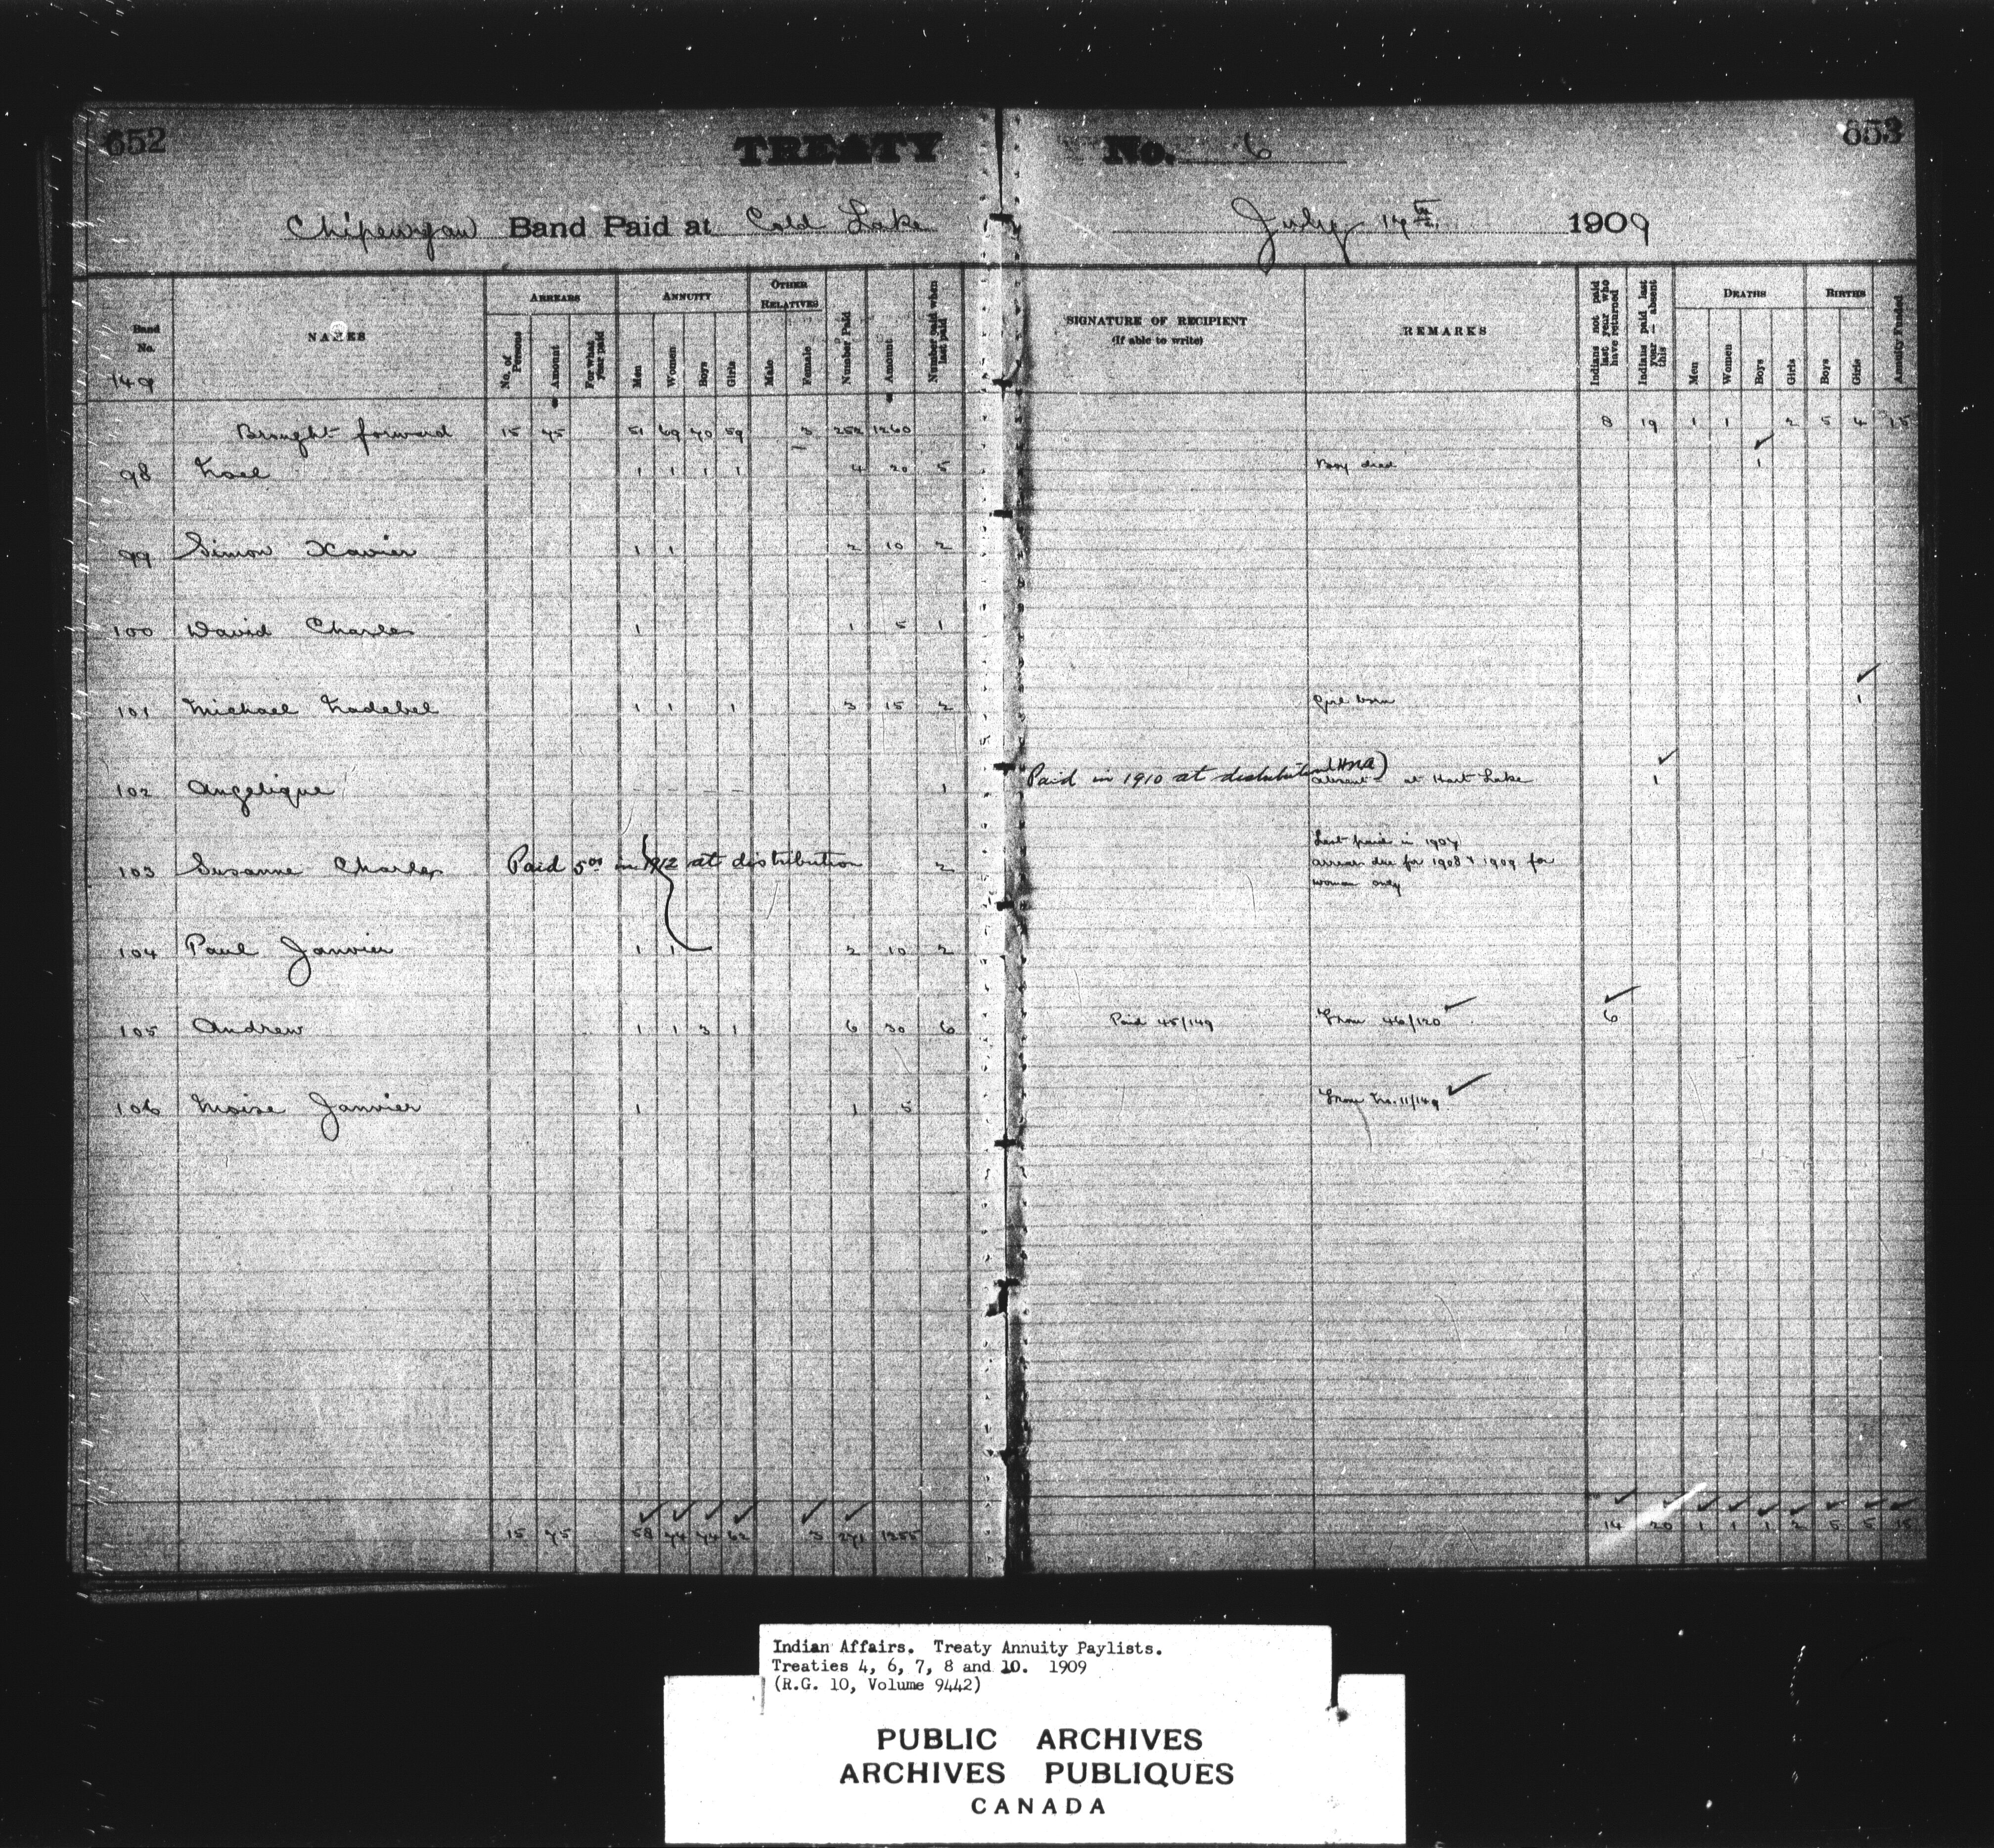 652
TREATY No. 6
653
Chipewyan Band Paid at Cold Lake July 17th 1909
Band No.
149
NAMES
ARREARS
No. of Persons
Amount
For what year paid
ANNUITY
Men
Women
Boys
Girls
OTHER RELATIVES
Male
Female
Number Paid
Amount
Number paid when last paid
SIGNATURE OF RECIPIENT
(If able to write)
REMARKS
Indians not paid last year who have returned
Indians paid last year - absent this
DEATHS
Men
Women
Boys
Girls
BIRTHS
Boys
Girls
Annuity Funded
Brought forward 15 75 51 69 70 59 3 252 1260 8 19 1 1 2 5 4 15
98 Noel 1 1 1 1 4 20 5 Boy died 1
99 Simon Xavier 1 1 2 10 2
100 David Charles 1 1 5 1
101 Michael Nadebel 1 1 1 3 15 2 Girl born 1
102 Angelique 1 Paid in 1910 at distribution absent at Hart Lake 1
103 Susanne Charles Paid 5.00 in 1912 at distribution 2 Last paid in 1907
arrears due for 1908 & 1909 for
woman only
104 Paul Janvier 1 1 2 10 2
105 Andrew 1 1 3 1 6 30 6 Paid 45/149 From 46/120 6
106 Moise Janvier 1 1 5 From No. 11/149
15 75 58 74 74 62 3 271 1355 14 20 1 1 1 2 5 5 15
Indian Affairs. Treaty Annuity Paylists.
Treaties 4, 6, 7, 8 and 10. 1909
(R.G. 10, Volume 9442)
PUBLIC ARCHIVES
ARCHIVES PUBLIQUES
CANADA